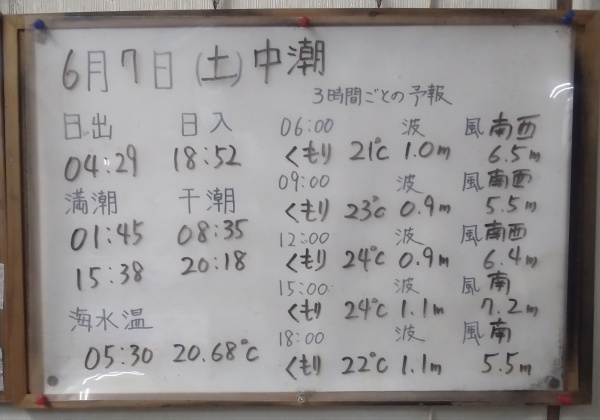 6月7日(土)中潮
3時間ごとの予報
日出 日入
04:29 18:52
満潮 干潮
01:45 08:35
15:38 20:18
海水温
05:30 20.68℃
06:00 波 風 南西
くもり 21℃ 1.0m 6.5m
09:00 波 風 南西
くもり 23℃ 0.9m 5.5m
12:00 波 風 南西
くもり 24℃ 0.9m 6.4m
15:00 波 風 南
くもり 24℃ 1.1m 7.2m
18:00 波 風 南
くもり 22℃ 1.1m 5.5m